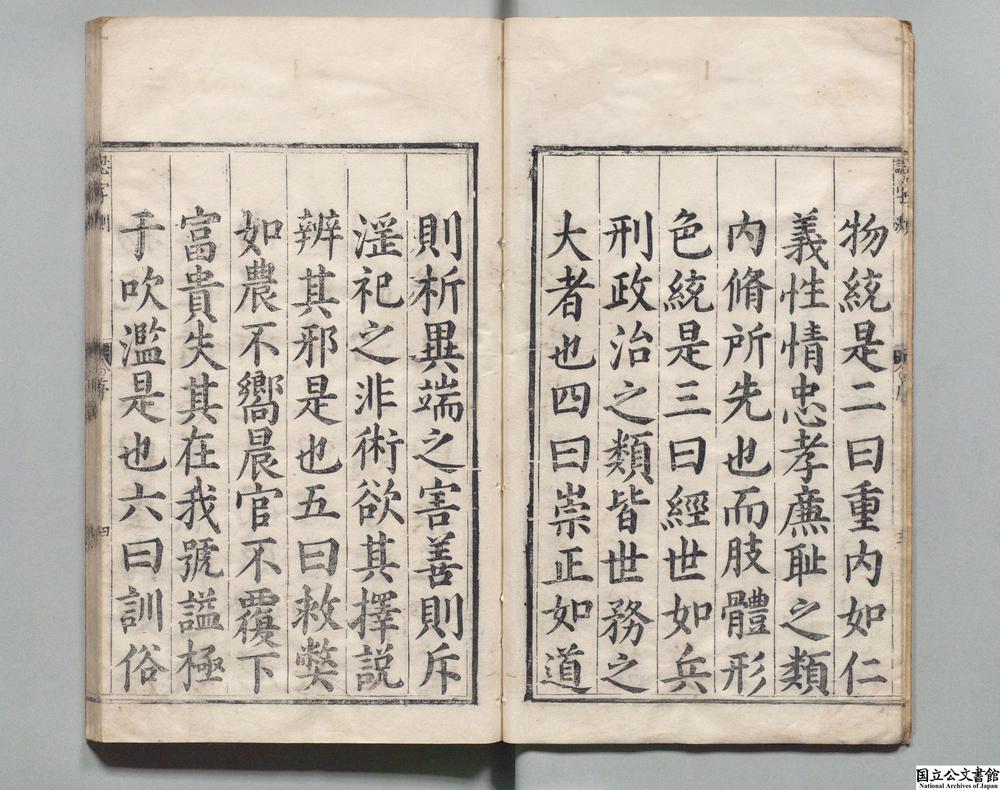 物統是二曰重内如仁
義性情忠孝廉耻之類
内脩所先也而肢體形
色統是三曰經世如兵
刑政治之類皆世務之
大者也四曰崇正如道
則析異端之害善則斥
淫祀之非術欲其擇説
辨其邪是也五曰救弊
如農不嚮晨官不覆下
富貴失其在我號謚極
于吹濫是也六曰訓俗
四
国立公文書館
National Archives of Japan